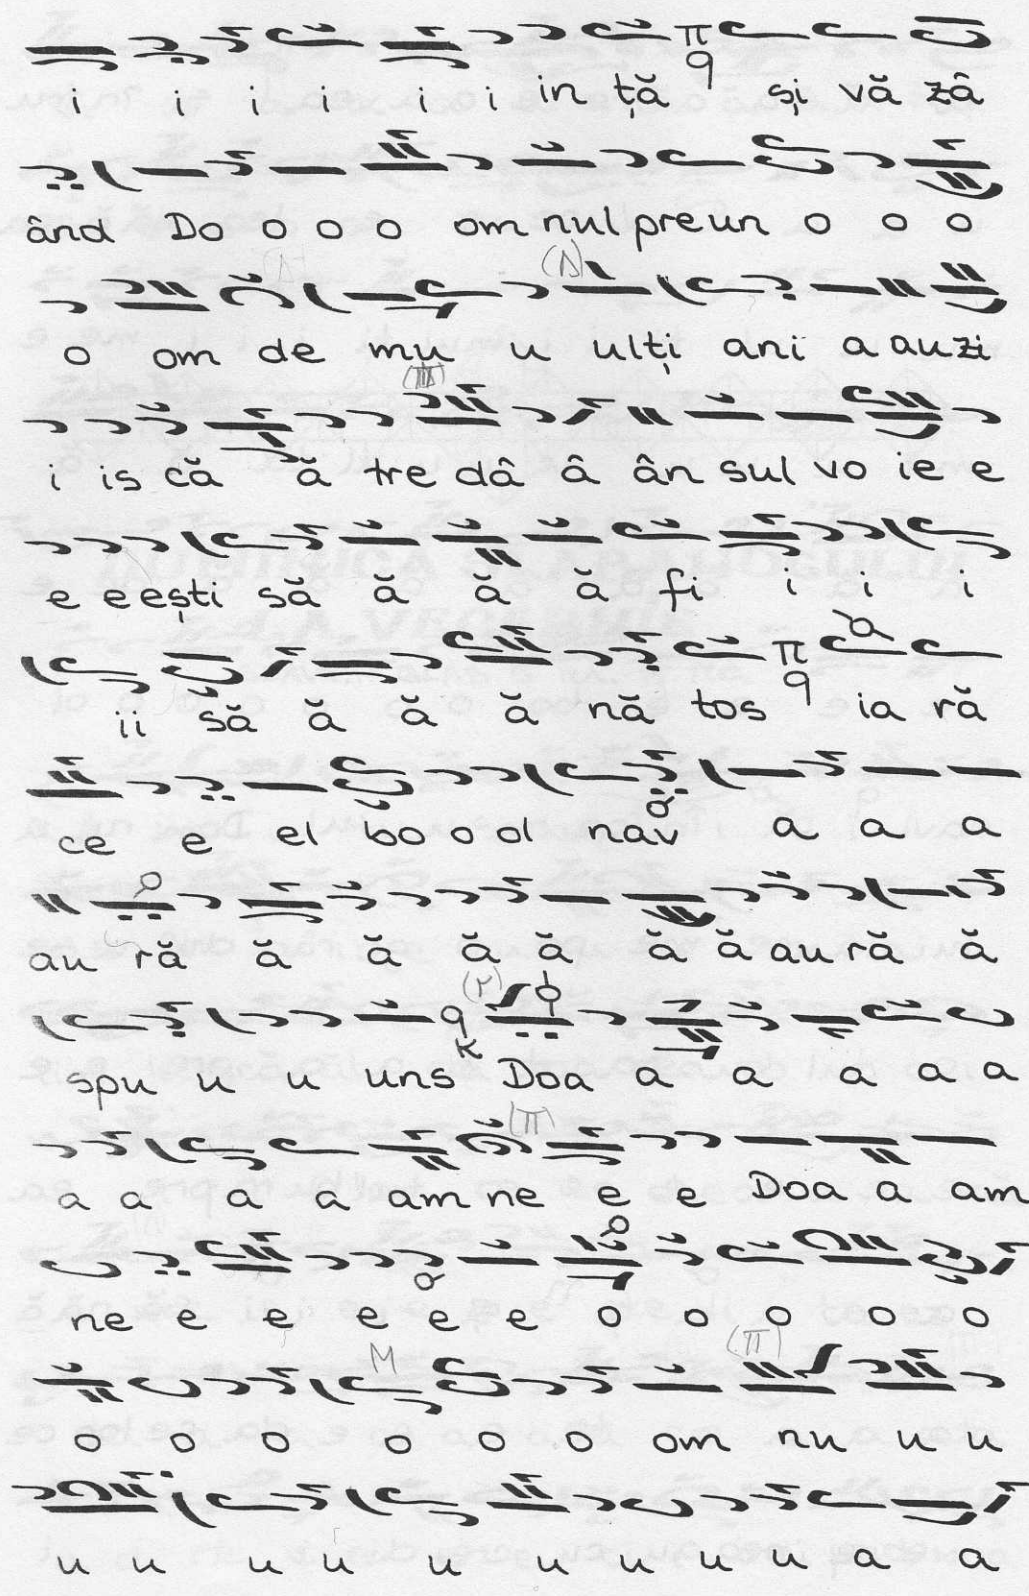 i i i i i i in ță și vă zâ
ând Do o o o om nul pre un o o o
o om de mu u ulți ani a a uzi
i is că ă tre dâ â ân sul vo ie e
e e ești să ă ă ă fi i i i
ii să ă ă ă nă tos ia ră
ce e el bo o ol nav a a a
au ră ă ă ă ă ă ă au ră ă
spu u u uns Doa a a a a a
a a a a am ne e e Doa a am
ne e e e e e o o o o o
o o o o o o om nu u u
u u u u u u u u u a a